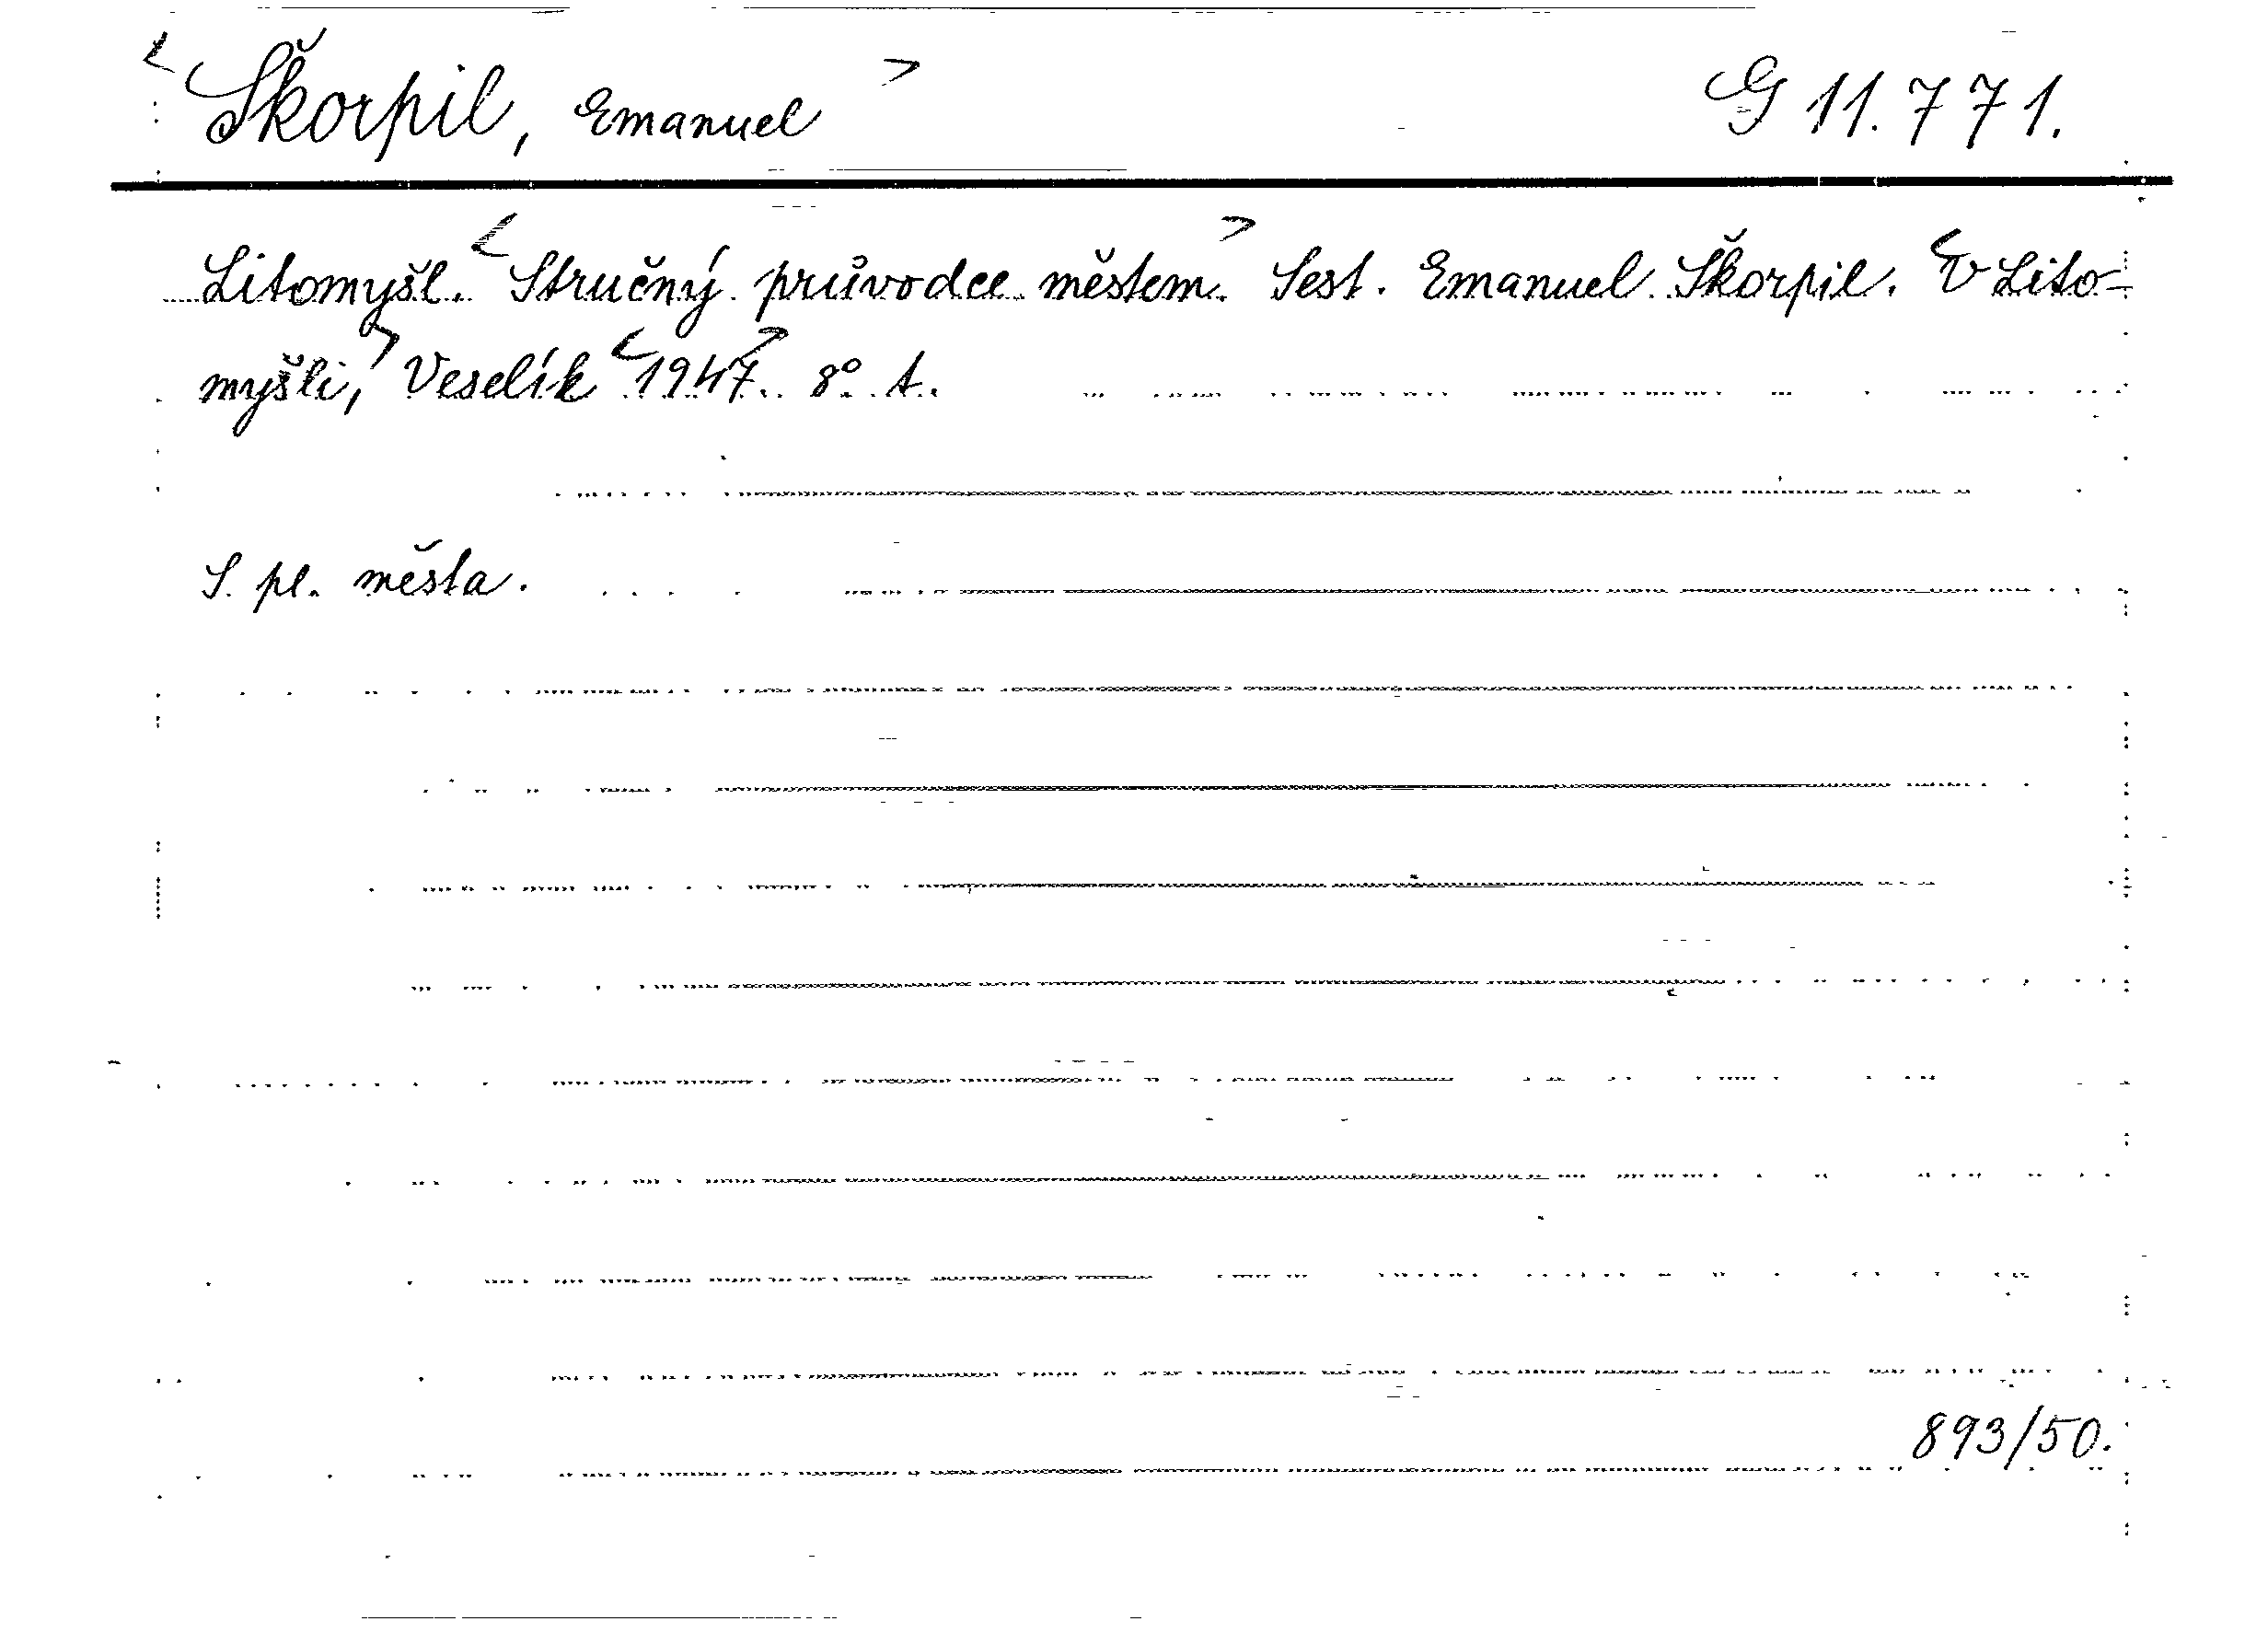 <Škorpil, Emanuel> G 11.771.
Litomyšl. <Stručný průvodce městem.> Sest. Emanuel Škorpil. <V Lito-
myšli,> Veselík <1947>. 8° t.
S. pl. města.
893/50.